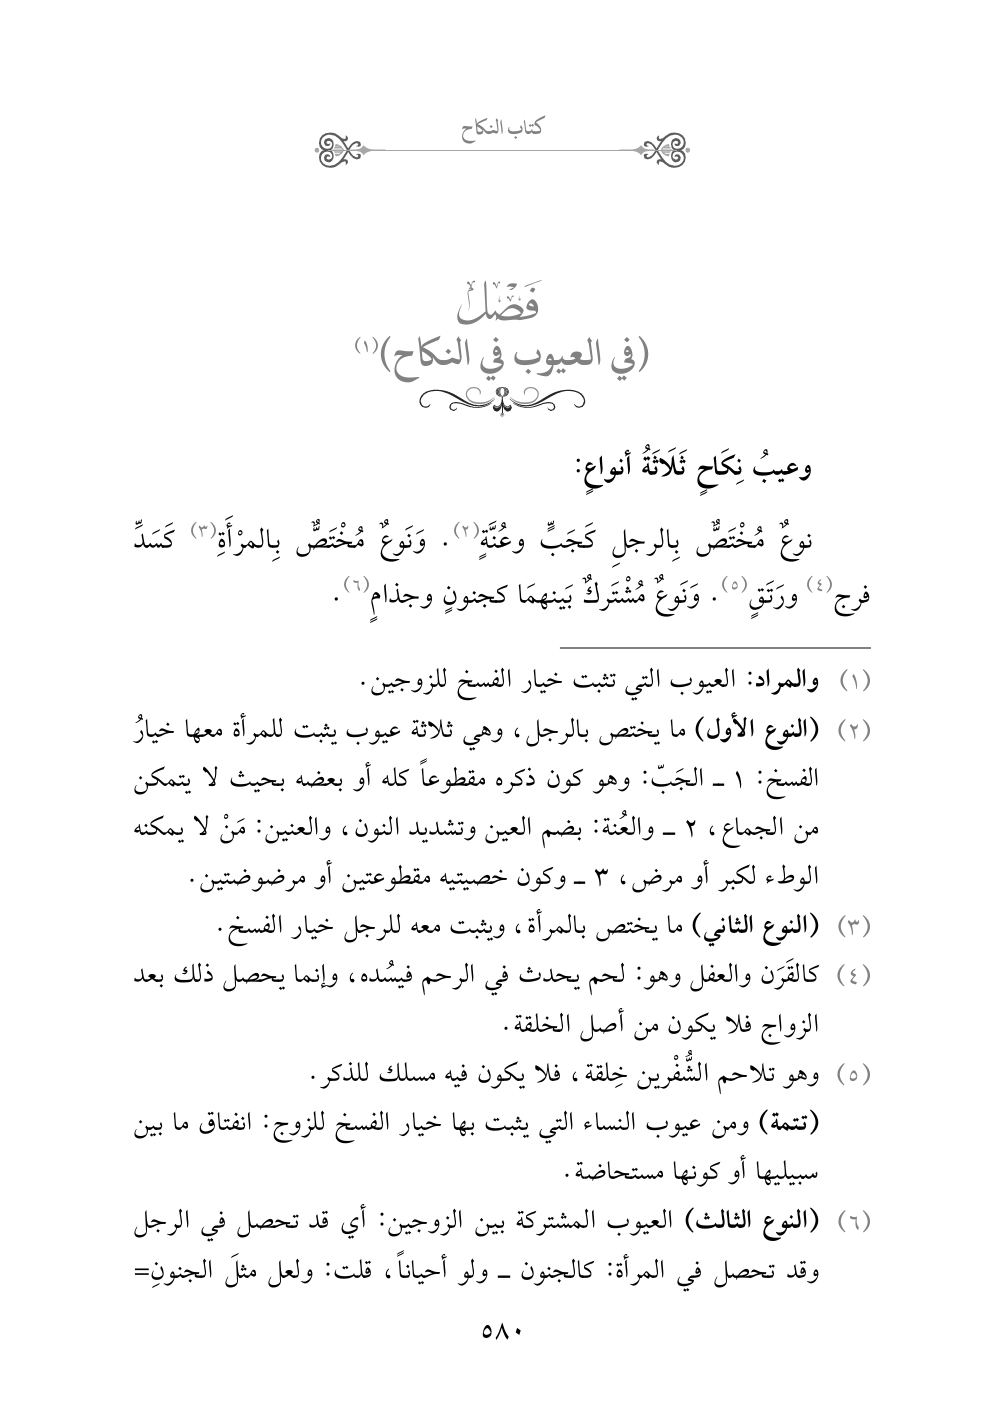 كتاب النكاح
فَصْلٌ
(في العيوب في النكاح)(١)
وعيبُ نِكَاحٍ ثَلَاثَةُ أنواعٍ:
نوعٌ مُخْتَصٌّ بِالرجلِ كَجَبٍّ وعُنَّةٍ(٢). وَنَوعٌ مُخْتَصٌّ بِالمرْأَةِ(٣) كَسَدِّ
فرج(٤) ورَتَقٍ(٥). وَنَوعٌ مُشْتَركٌ بَينهمَا كجنونٍ وجذامٍ(٦).
(١) والمراد: العيوب التي تثبت خيار الفسخ للزوجين.
(٢) (النوع الأول) ما يختص بالرجل، وهي ثلاثة عيوب يثبت للمرأة معها خيارُ
الفسخ: ١ ـ الجَبّ: وهو كون ذكره مقطوعاً كله أو بعضه بحيث لا يتمكن
من الجماع، ٢ ـ والعُنة: بضم العين وتشديد النون، والعنين: مَنْ لا يمكنه
الوطء لكبر أو مرض، ٣ ـ وكون خصيتيه مقطوعتين أو مرضوضتين.
(٣) (النوع الثاني) ما يختص بالمرأة، ويثبت معه للرجل خيار الفسخ.
(٤) كالقَرَن والعفل وهو: لحم يحدث في الرحم فيسُده، وإنما يحصل ذلك بعد
الزواج فلا يكون من أصل الخلقة.
(٥) وهو تلاحم الشُّفْرين خِلقة، فلا يكون فيه مسلك للذكر.
(تتمة) ومن عيوب النساء التي يثبت بها خيار الفسخ للزوج: انفتاق ما بين
سبيليها أو كونها مستحاضة.
(٦) (النوع الثالث) العيوب المشتركة بين الزوجين: أي قد تحصل في الرجل
وقد تحصل في المرأة: كالجنون ـ ولو أحياناً، قلت: ولعل مثلَ الجنونِ=
٥٨٠